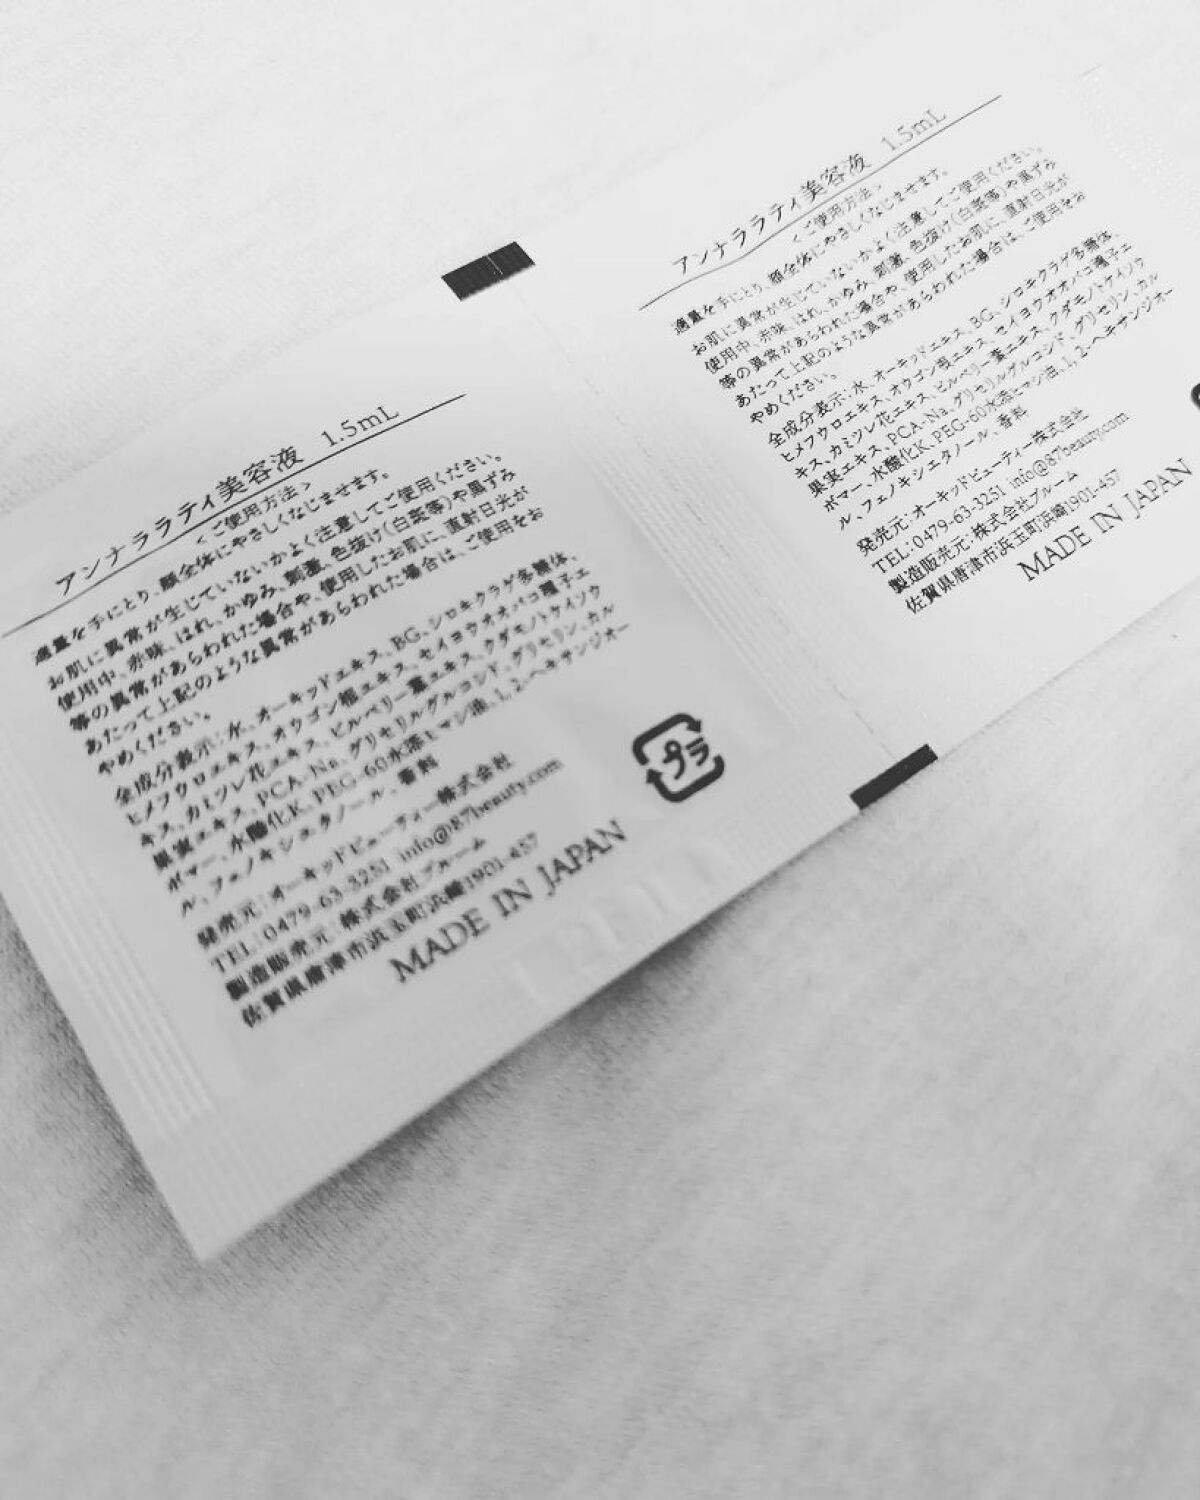 アンナララティ美容液 1.5mL
＜ご使用方法＞
適量を手にとり、顔全体にやさしくなじませます。
お肌に異常が生じていないかよく注意してご使用ください。
使用中、赤味、はれ、かゆみ、刺激、色抜け(白斑等)や黒ずみ
等の異常があらわれた場合や、使用したお肌に、直射日光が
あたって上記のような異常があらわれた場合は、ご使用をお
やめください。
全成分表示：水、オーキッドエキス、BG、シロキクラゲ多糖体、
ヒメフウロエキス、オウゴン根エキス、セイヨウオオバコ種子エ
キス、カミツレ花エキス、ビルベリー葉エキス、クダモノトケイソウ
果実エキス、PCA-Na、グリセリルグルコシド、グリセリン、カル
ボマー、水酸化K、PEG-60水添ヒマシ油、1, 2-ヘキサンジオー
ル、フェノキシエタノール、香料
発売元：オーキッドビューティー株式会社
TEL：0479-63-3251 info@87beauty.com
製造販売元：株式会社ブルーム
佐賀県唐津市浜玉町浜崎1901-457
MADE IN JAPAN
プラ
アンナララティ美容液 1.5mL
＜ご使用方法＞
適量を手にとり、顔全体にやさしくなじませます。
お肌に異常が生じていないかよく注意してご使用ください。
使用中、赤味、はれ、かゆみ、刺激、色抜け(白斑等)や黒ずみ
等の異常があらわれた場合や、使用したお肌に、直射日光が
あたって上記のような異常があらわれた場合は、ご使用をお
やめください。
全成分表示：水、オーキッドエキス、BG、シロキクラゲ多糖体、
ヒメフウロエキス、オウゴン根エキス、セイヨウオオバコ種子エ
キス、カミツレ花エキス、ビルベリー葉エキス、クダモノトケイソウ
果実エキス、PCA-Na、グリセリルグルコシド、グリセリン、カル
ボマー、水酸化K、PEG-60水添ヒマシ油、1, 2-ヘキサンジオー
ル、フェノキシエタノール、香料
発売元：オーキッドビューティー株式会社
TEL：0479-63-3251 info@87beauty.com
製造販売元：株式会社ブルーム
佐賀県唐津市浜玉町浜崎1901-457
MADE IN JAPAN